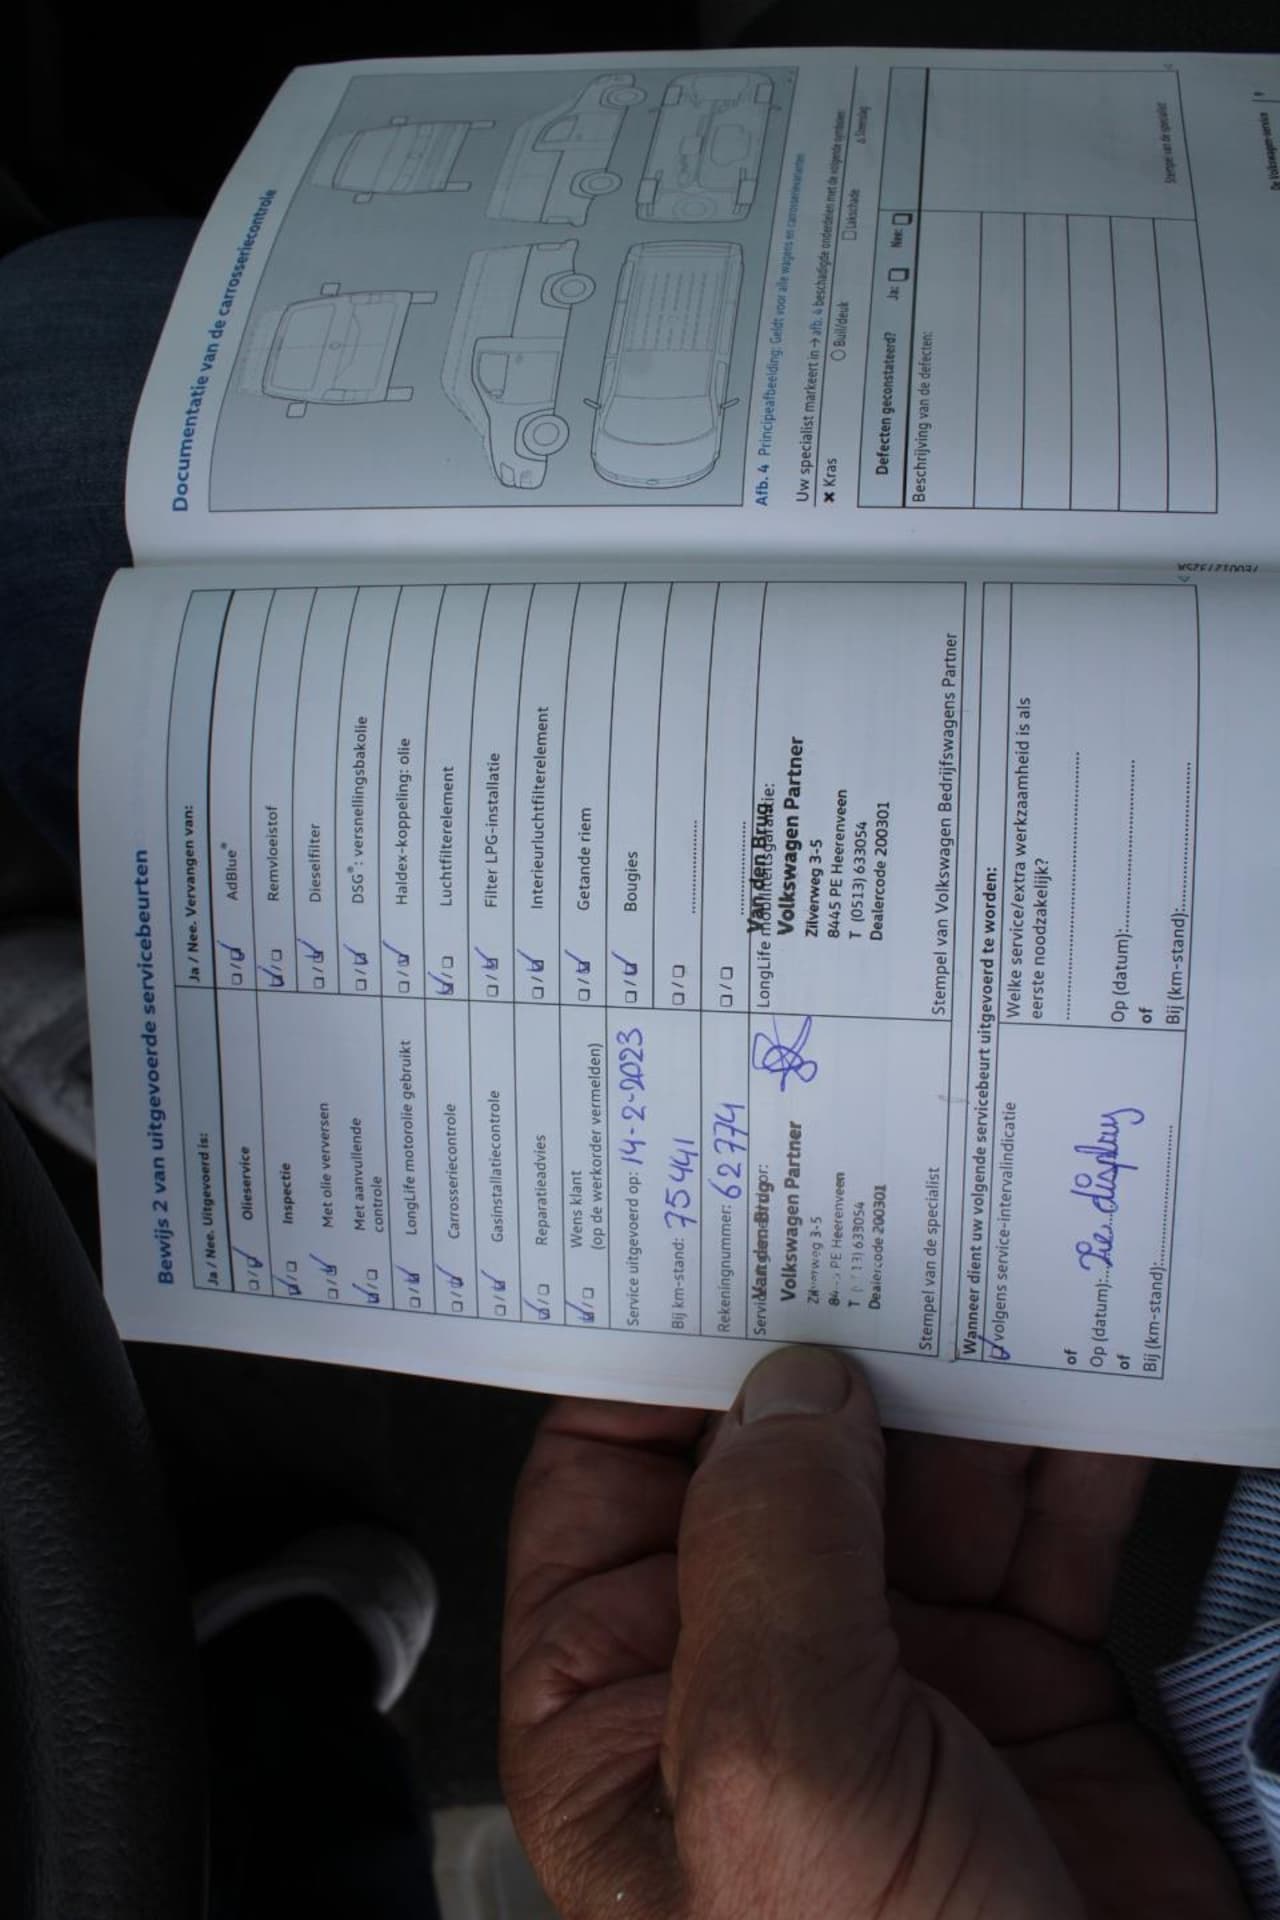 Bewijs 2 van uitgevoerde servicebeurten
Ja / Nee. Uitgevoerd is:
Olieservice
Inspectie
Met olie verversen
Met aanvullende
controle
LongLife motorolie gebruikt
Carrosseriecontrole
Gasinstallatiecontrole
Reparatieadvies
Wens klant
(op de werkorder vermelden)
Service uitgevoerd op: 14-2-2023
Bij km-stand: 75441
Rekeningnummer: 62774
Van den Brug
Volkswagen Partner
Zilverweg 3-5
PE Heerenveen
633054
Dealercode 200301
Stempel van de specialist
Ja / Nee. Vervangen van:
AdBlue®
Remvloeistof
Dieselfilter
DSG®: versnellingsbakolie
Haldex-koppeling: olie
Luchtfilterelement
Filter LPG-installatie
Interieurluchtfilterelement
Getande riem
Bougies
LongLife mobiliteitsgarantie:
Van den Brug
Volkswagen Partner
Zilverweg 3-5
8445 PE Heerenveen
T (0513) 633054
Dealercode 200301
Stempel van Volkswagen Bedrijfswagens Partner
Wanneer dient uw volgende servicebeurt uitgevoerd te worden:
volgens service-intervalindicatie
of
Op (datum): Zie display
of
Bij (km-stand):
Welke service/extra werkzaamheid is als
eerste noodzakelijk?
Op (datum):
of
Bij (km-stand):
Documentatie van de carrosseriecontrole
Afb. 4 Principeafbeelding: Geldt voor alle wagens en carrosserievarianten
Uw specialist markeert in → afb. 4 beschadigde onderdelen met de volgende symbolen:
✖ Kras ○ Buil/deuk □ Lakschade Δ Steenslag
Defecten geconstateerd? Ja: Nee:
Beschrijving van de defecten:
Stempel van de specialist
De Volkswagen-service